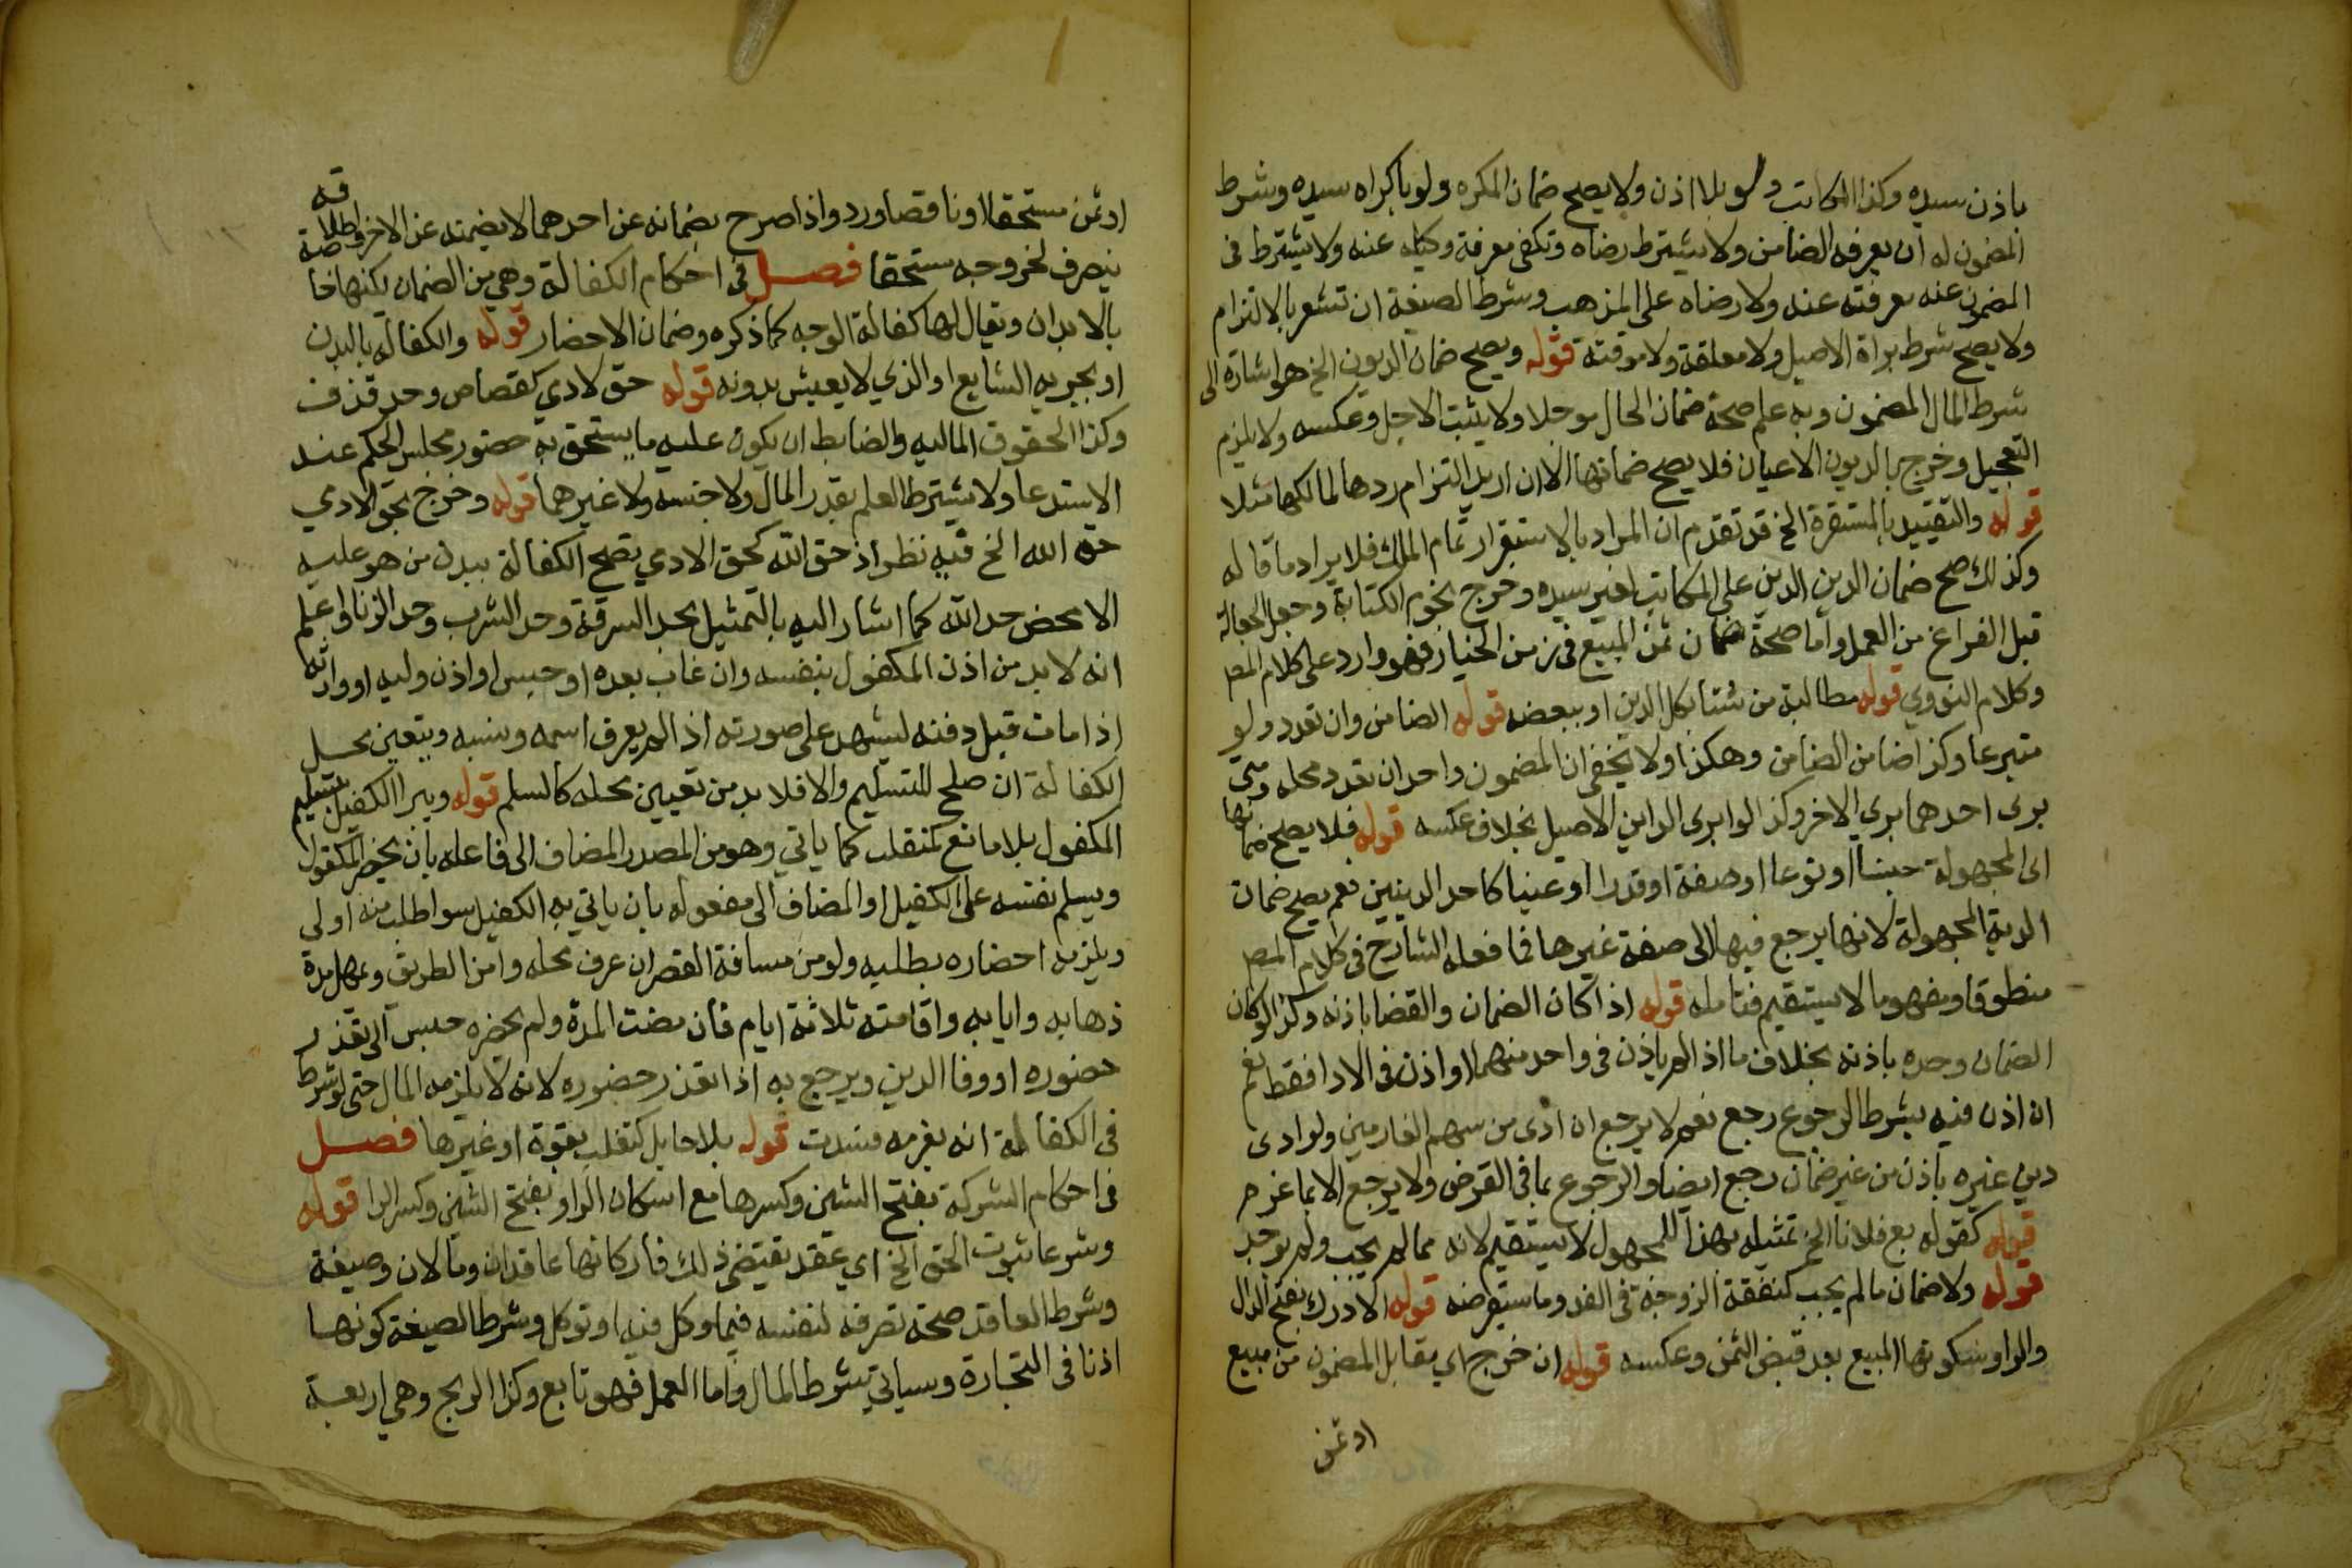 باذن سيده وكذا المكاتب ولو بلا اذن ولا يصح ضمان المكره ولو باكراه سيده وشرط
المضمون له ان يعرفه الضامن ولا يشترط رضاه وتكفي معرفة وكيله عنه ولا يشترط في
المضمون عنه معرفته عنه ولا رضاه على المذهب وشرط الصيغة ان تشعر بالالتزام
ولا يصح شرط براة الاصيل ولا معلقة ولا موقتة قوله ويصح ضمان الديون الخ هو اشارة الى
شرط المال المضمون وبه علم صحة ضمان الحال موجلا ولا يثبت الاجل وعكسه ولا يلزم
التعجيل وخرج بالديون الاعيان فلا يصح ضمانها الا ان اريد التزام ردها لمالكها مثلا
قوله والتقييد بالمستقرة الخ قد تقدم ان المراد بالاستقرار تمام الملك فلا يراد ما قاله
وكذلك صح ضمان الدين الدين على المكاتب لغير سيده وخرج نجوم الكتابة وجعل الجعالة
قبل الفراغ من العمل واما صحة ضمان ثمن المبيع في زمن الخيار فهو وارد على كلام المص
وكلام النووي قوله مطالبة من شتا بكل الدين او ببعضه قوله الضامن وان تعدد ولو
متبرعا وكذا ضامن الضامن وهكذا ولا يخفي ان المضمون واحد ان تعدد محله ومتى
بري احدهما بري الاخر وكذا لو ابرى الداين الاصيل بخلاف عكسه قوله فلا يصح ضمانها
اي المجهولة جنسا او نوعا او صفة او قدرا او عينا كاحد الدينين نعم يصح ضمان
الدية المجهولة لانها يرجع فيها الى صفة غيرها فما فعله الشارح في كلام المص
منطوقا ومفهوما لا يستقيم فتامله قوله اذا كان الضمان والقضا باذنه وكذا لو كان
الضمان وحده باذنه بخلاف ما اذا لم ياذن في واحد منهما او اذن في الادا فقط نعم
ان اذن فيه بشرط الرجوع رجع نعم لا يرجع ان ادى من سهم الغارمين ولو ادى
دين غيره باذن من غير ضمان رجع ايضا والرجوع بما في القرض ولا يرجع الا بما غرم
قوله كقوله بع فلانا الخ تمثيله بهذا للمجهول لا يستقيم لانه مما لم يجب ولم يوجد
قوله ولا ضمان ما لم يجب كنفقة الزوجة في الغد وما ستقرضه قوله الا درك بفتح الدال
والراو سكونها المبيع بعد قبض الثمن وعكسه قوله ان خرج اي مقابل المضمون من مبيع
او ثمن
او ثمن مستحقا او ناقصا ورد واذا صرح بضمانه عن احدهما لا يضمنه عن الاخر واطلاقه
ينصرف لخروجه مستحقا فصل في احكام الكفالة وهي من الضمان لكنها خاصة
بالابدان ويقال لها كفالة الوجه كما ذكره وضمان الاحضار قوله والكفالة بالبدن
او بجزيه الشايع او الذي لا يعيش بدونه قوله حق لادمي كقصاص وحد قذف
وكذا الحقوق الماليه والضابط ان يكون عليه ما يستحق به حضور مجلس الحكم عند
الاستدعا ولا يشترط العلم بقدر المال ولا جنسه ولا غيرهما قوله وخرج بحق الادمي
حق الله الخ فيه نظر اذ حق الله كحق الادمي تصح الكفالة ببدن من هو عليه
الا محض حد الله كما اشار اليه بالتمثيل بحد السرقة وحد الشرب وحد الزنا واعلم
انه لا بد من اذن المكفول بنفسه وان غاب بعده او حبس او اذن وليه او وارثه
اذا مات قبل دفنه ليشهد على صورته اذا لم يعرف اسمه ونسبه ويتعين محل
الكفالة ان صلح للتسليم والا فلا بد من تعيين محله كالسلم قوله ويبرا الكفيل بتسليم
المكفول بلا مانع كمتغلب كما ياتي وهو من المصدر المضاف الى فاعله بان يحضر المكفول
ويسلم نفسه على الكفيل او المضاف الى مفعوله بان ياتي به الكفيل سوا طلب منه اولى
ويلزمه احضاره بطلبه ولو من مسافة القصر ان عرف محله وامن الطريق ويمهل مدة
ذهابه وايابه واقامته ثلاثة ايام فان مضت المدة ولم يحضره حبس الى تعذر
حضوره او وفا الدين ويرجع به اذا تعذر حضوره لانه لا يلزمه المال حتى لو شرط
في الكفالة انه يغرمه فسدت قوله بلا حايل كتغلب بقوة او غيرها فصل
في احكام الشركة بفتح الشين وكسرها مع اسكان الرا وبفتح الشين وكسر الرا قوله
وشرعا ثبوت الحق الخ اي عقد يقتضي ذلك فاركانها عاقدان ومالان وصيغة
وشرط العاقد صحة تصرفه لنفسه فيما وكل فيه او توكل وشرط الصيغة كونها
اذنا في التجارة وسياتي شرط المال واما العمل فهو تابع وكذا الربح وهي اربعة